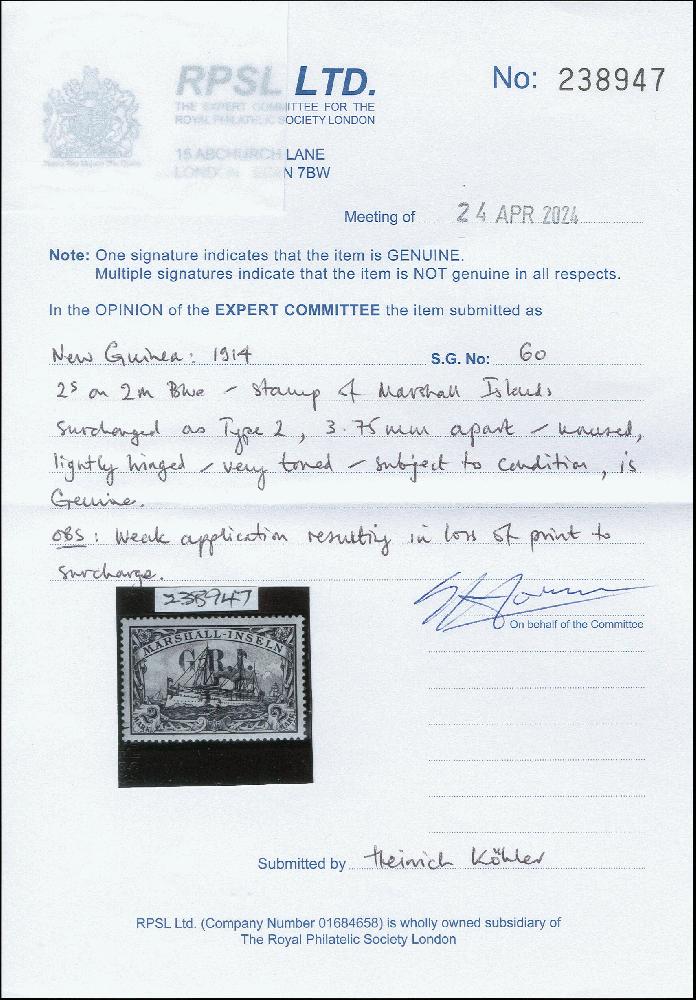 RPSL LTD.
No: 238947
THE EXPERT COMMITTEE FOR THE
ROYAL PHILATELIC SOCIETY LONDON
15 ABCHURCH LANE
LONDON 7BW
Meeting of 24 APR 2024
Note: One signature indicates that the item is GENUINE.
Multiple signatures indicate that the item is NOT genuine in all respects.
In the OPINION of the EXPERT COMMITTEE the item submitted as
New Guinea: 1914 S.G. No: 60
2s on 2m Blue - Stamp of Marshall Islands
surcharged as Type 2, 3.75mm apart - unused,
lightly hinged - very toned - subject to condition, is
Genuine.
OBS: Weak application resulting in loss of print to
surcharge.
238947
MARSHALL-INSELN
G.R.I.
On behalf of the Committee
Submitted by Heinrich Köhler
RPSL Ltd. (Company Number 01684658) is wholly owned subsidiary of
The Royal Philatelic Society London